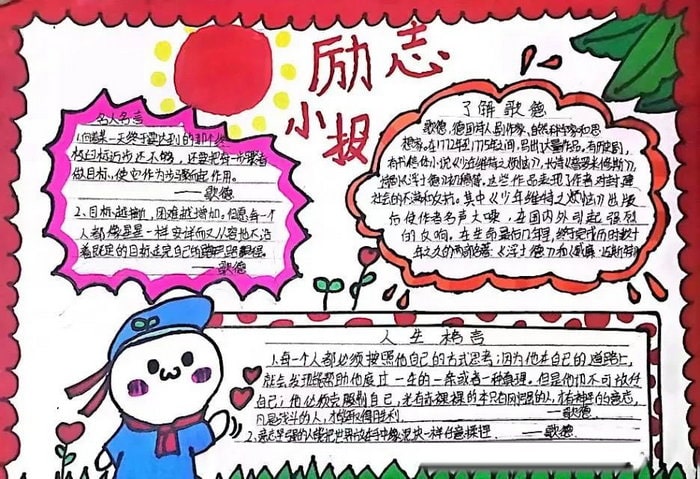 励志
小报
名人名言
1.向着某一天终于要达到的那个终
极目标迈步还不够，还要把每一步骤看
做目标，使它作为步骤而起作用。
——歌德
2、目标越接近，困难越增加。但愿每一个
人都像星星一样安详而又从容地不断沿
着既定的目标走完自己的路程。
——歌德
了解歌德
歌德，德国诗人，剧作家，自然科学家和思
想家，在1772年到1775年之间，写出大量作品，有
书信体小说《少年维特之烦恼》，
《浮士德》初稿等。这些作品表现了作者对封建
社会的不满和反抗。其中《少年维特之烦恼》出版
后使作者名声大噪，在国内外引起强烈
的反响。在生命最后几年里，终于完成了时数十
年之久的两部巨著：《浮士德》和《威廉·迈斯特》
人生格言
1.每一个人都必须按照他自己的方式思考；因为他在自己的道路上，
就会发现能帮助他度过一生的一条或者一种真理。但是他切不可放任
自己；他必须克服制自己，光有赤裸裸的本只有
凡是战斗的人，才能取得胜利。——歌德
2、意志坚强的人能把世界放在手中像泥块一样任意揉捏。——歌德